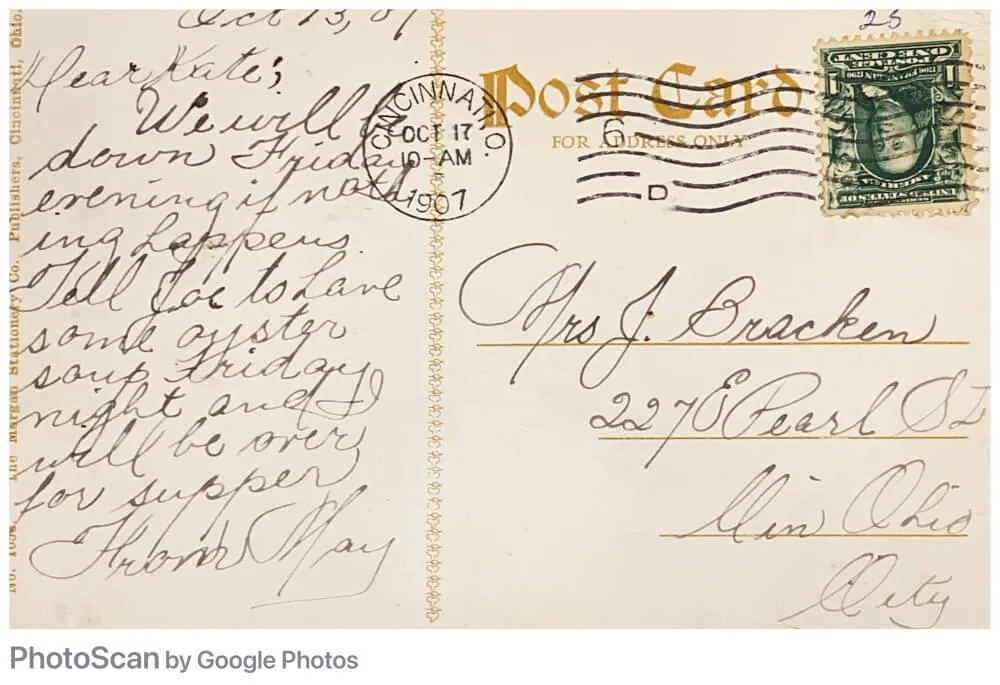 Oct 13, 07
Dear Kate;
We will
down Friday
evening if noth
ing happens.
Tell Joe to have
some oyster
soup Friday
night and I
will be over
for supper
From May
No. 1656 The Morgan Stationery Co. Publishers, Cincinnati, Ohio.
CINCINNATI, O.
OCT 17
10-AM
1907
Post Card
FOR ADDRESS ONLY
6
D
25
ONE CENT
1
1
Mrs J. Bracken
227 E Pearl St
Ohio
City
PhotoScan by Google Photos